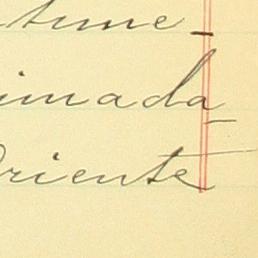 tume-
imada
Oriente